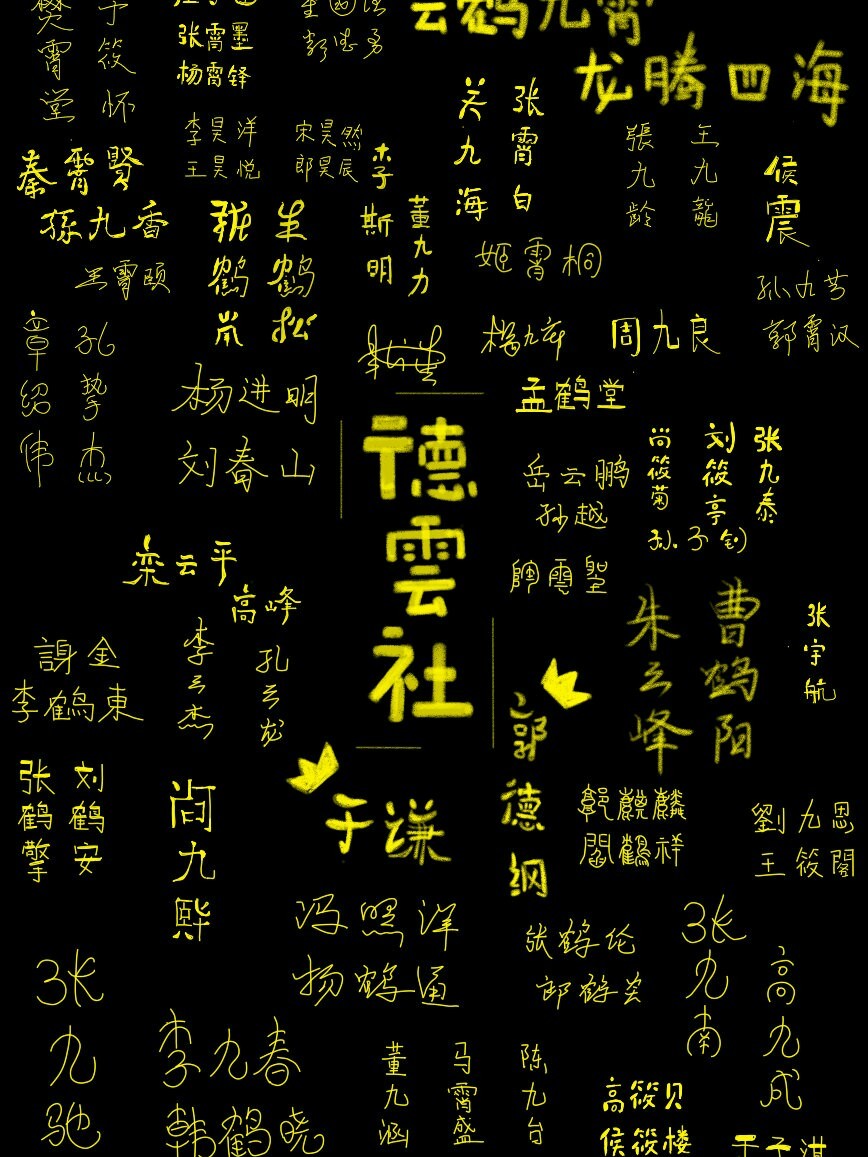 云鹤九霄
龙腾四海
张霄墨
杨霄铎
樊霄堂
于筱怀
李昊洋
王昊悦
宋昊然
郎昊辰
关九海
张霄白
李斯明
董九力
張九龄
王九龍
侯震
秦霄賢
孫九香
張鹤岚
朱鹤松
姬霄桐
孙九芳
郭霄汉
杨九郎
周九良
章绍伟
孔挚杰
杨进明
刘春山
孟鹤堂
德雲社
岳云鹏
孙越
尚筱菊
刘筱亭
张九泰
孙子钊
陶雲聖
栾云平
高峰
朱云峰
曹鹤阳
张宇航
謝金
李鶴東
李云杰
孔云龙
郭德纲
于谦
张鹤擎
刘鹤安
尚九熙
郭麒麟
閻鶴祥
劉九思
王筱閣
冯照洋
杨鹤通
张鹤伦
郎鹤炎
张九南
高九成
张九驰
李九春
韩鹤晓
董九涵
马霄盛
陈九台
高筱贝
侯筱楼